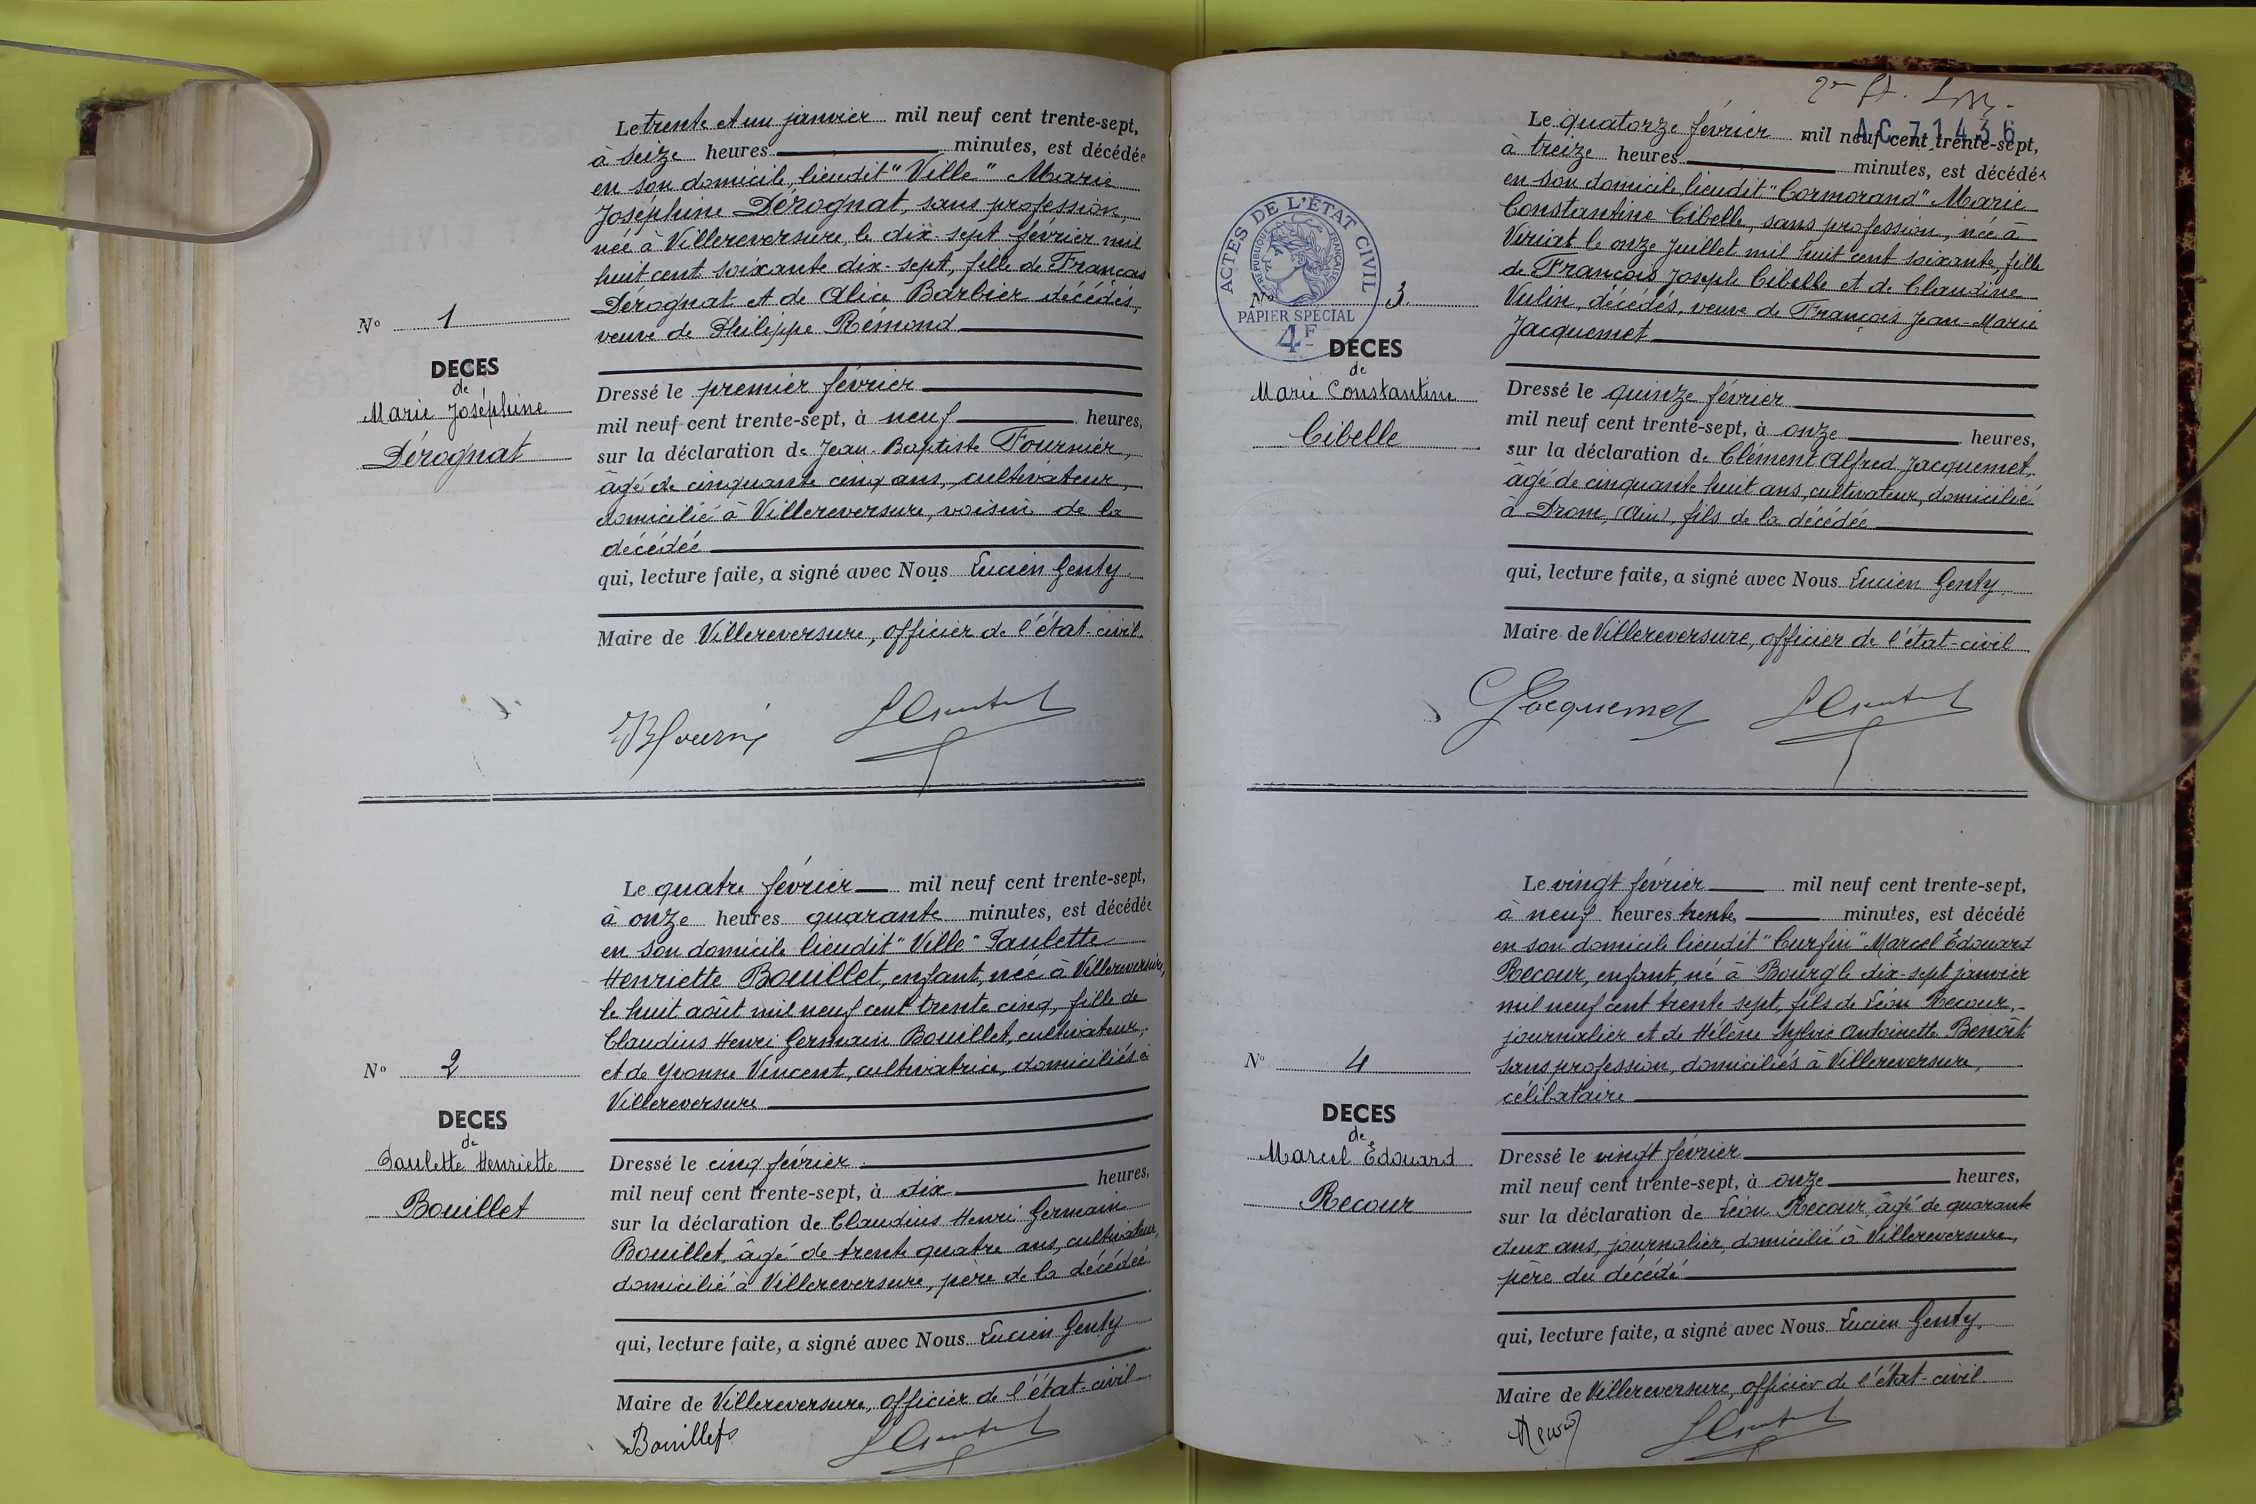 Le trente et un janvier mil neuf cent trente-sept,
à seize heures minutes, est décédée
en son domicile, lieudit "Ville" Marie
Joséphine Dérognat, sans profession,
née à Villereversure, le dix-sept février mil
huit cent soixante dix-sept, fille de François
Dérognat et de Alice Barbier décédés,
veuve de Philippe Rémond
Nº 1
DECES
de
Marie Joséphine
Dérognat
Dressé le premier février
mil neuf cent trente-sept, à neuf heures,
sur la déclaration de Jean-Baptiste Fournier,
âgé de cinquante cinq ans, cultivateur,
domicilié à Villereversure, voisin de la
décédée
qui, lecture faite, a signé avec Nous Lucien Genty.
Maire de Villereversure, officier de l'état-civil.
Le quatre février mil neuf cent trente-sept,
à onze heures quarante minutes, est décédée
en son domicile lieudit "Ville" Paulette
Henriette Bouillet, enfant, née à Villereversure,
le huit août mil neuf cent trente cinq, fille de
Claudius Henri Germain Bouillet, cultivateur,
et de Yvonne Vincent, cultivatrice, domiciliés à
Villereversure
Nº 2
DECES
de
Paulette Henriette
Bouillet
Dressé le cinq février
mil neuf cent trente-sept, à dix heures,
sur la déclaration de Claudius Henri Germain
Bouillet, âgé de trente quatre ans, cultivateur,
domicilié à Villereversure, père de la décédée
qui, lecture faite, a signé avec Nous Lucien Genty
Maire de Villereversure, officier de l'état-civil
Bouillet
AC 71436
Le quatorze février mil neuf cent trente-sept,
à treize heures minutes, est décédée
en son domicile lieudit "Cormorand" Marie
Constantine Cibelle, sans profession, née à
Viriat le onze Juillet mil huit cent soixante, fille
de François Joseph Cibelle et de Claudine
Vulin, décédés, veuve de François Jean-Marie
Jacquemet
ACTES DE L'ÉTAT CIVIL
RÉPUBLIQUE FRANÇAISE
PAPIER SPÉCIAL
4F
Nº 3
DECES
de
Marie Constantine
Cibelle
Dressé le quinze février
mil neuf cent trente-sept, à onze heures,
sur la déclaration de Clément Alfred Jacquemet,
âgé de cinquante huit ans, cultivateur, domicilié
à Drom, (Ain), fils de la décédée
qui, lecture faite, a signé avec Nous Lucien Genty
Maire de Villereversure, officier de l'état-civil
Jacquemet
Le vingt février mil neuf cent trente-sept,
à neuf heures trente minutes, est décédé
en son domicile lieudit "Curfin" Marcel Édouard
Recour, enfant, né à Bourg le dix-sept janvier
mil neuf cent trente sept, fils de Léon Recour,
journalier et de Hélène Sylvie Antoinette Benoît
sans profession, domiciliés à Villereversure,
célibataire
Nº 4
DECES
de
Marcel Édouard
Recour
Dressé le vingt février
mil neuf cent trente-sept, à onze heures,
sur la déclaration de Léon Recour, âgé de quarante
deux ans, journalier, domicilié à Villereversure,
père du décédé
qui, lecture faite, a signé avec Nous Lucien Genty.
Maire de Villereversure, officier de l'état-civil